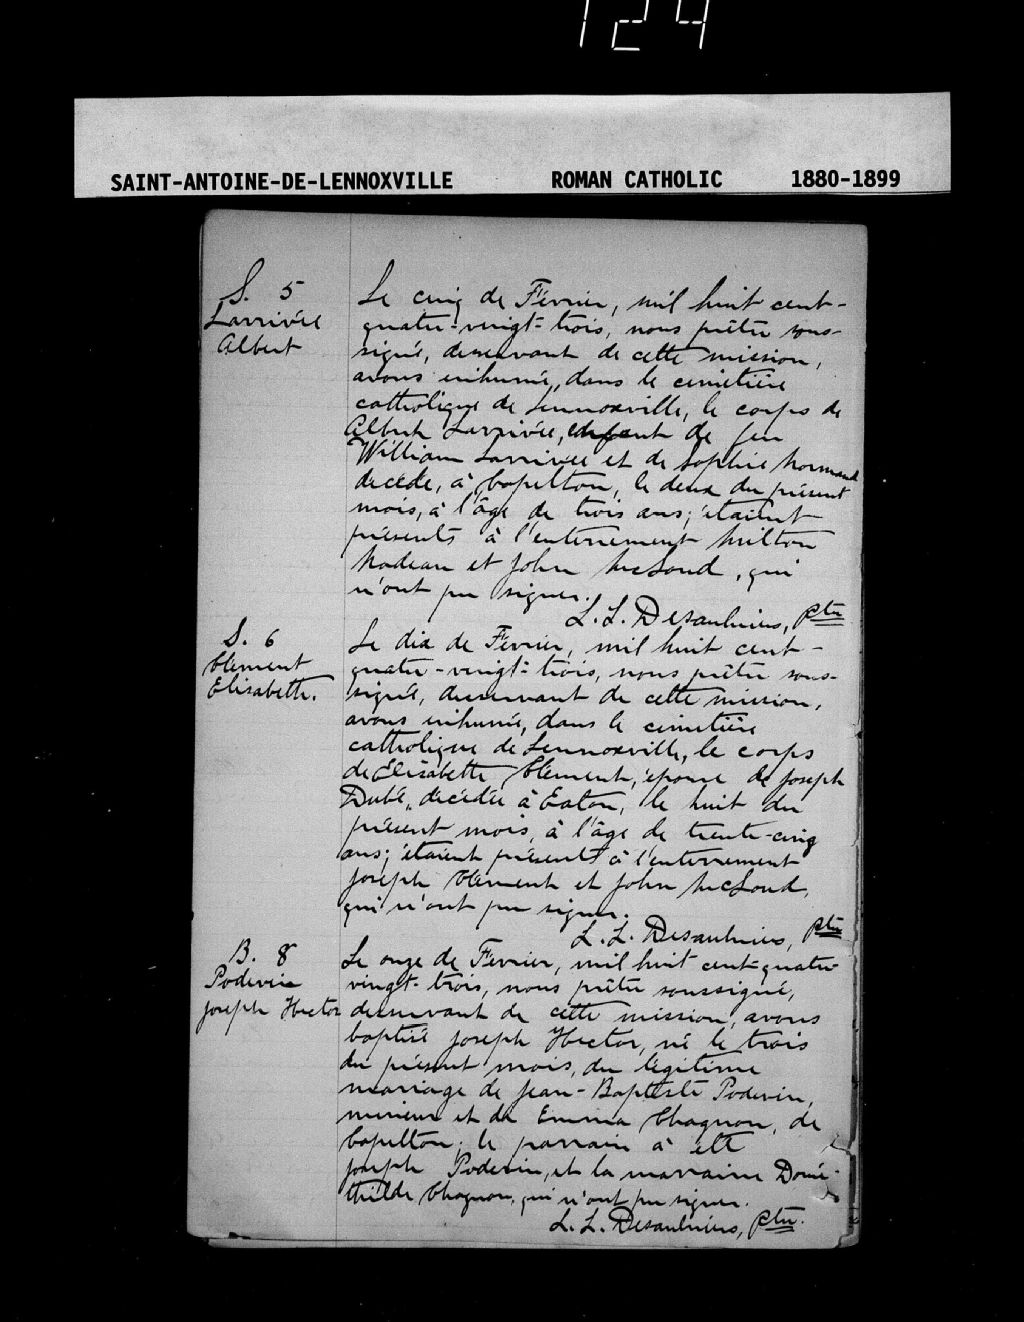 124
SAINT-ANTOINE-DE-LENNOXVILLE ROMAN CATHOLIC 1880-1899
S. 5
Larrivée
Albert
Le cinq de Février, mil huit cent-
quatre-vingt-trois, nous prêtre sous-
signé, desservant de cette mission,
avons inhumé, dans le cimetière
catholique de Lennoxville, le corps de
Albert Larrivée, enfant de feu
William Larrivée et de Sophie Normand
decédé, à Capelton, le deux du présent
mois, à l'âge de trois ans; étaient
présents à l'enterrement Milton
Nadeau et John McLoud, qui
n'ont pu signer.
L. L. Desaulniers, Ptre
S. 6
Clément
Elisabeth.
Le dix de Février, mil huit cent-
quatre-vingt-trois, nous prêtre sous-
signé, desservant de cette mission,
avons inhumé, dans le cimetière
catholique de Lennoxville, le corps
de Elisabeth Clément, épouse de Joseph
Dubé, décédée à Eaton, le huit du
présent mois, à l'âge de trente-cinq
ans; étaient présents à l'enterrement
Joseph Clément et John McLoud,
qui n'ont pu signer.
L. L. Desaulniers, Ptre
B. 8
Podevin
Joseph Hector
Le onze de Février, mil huit cent-quatre-
vingt-trois, nous prêtre soussigné,
desservant de cette mission, avons
baptisé Joseph Hector, né le trois
du présent mois, du légitime
mariage de Jean-Baptiste Podevin,
mineur et de Emma Chagnon, de
Capelton; le parrain à été
Joseph Podevin, et la marraine Domi-
thilde Chagnon, qui n'ont pu signer.
L. L. Desaulniers, Ptre.